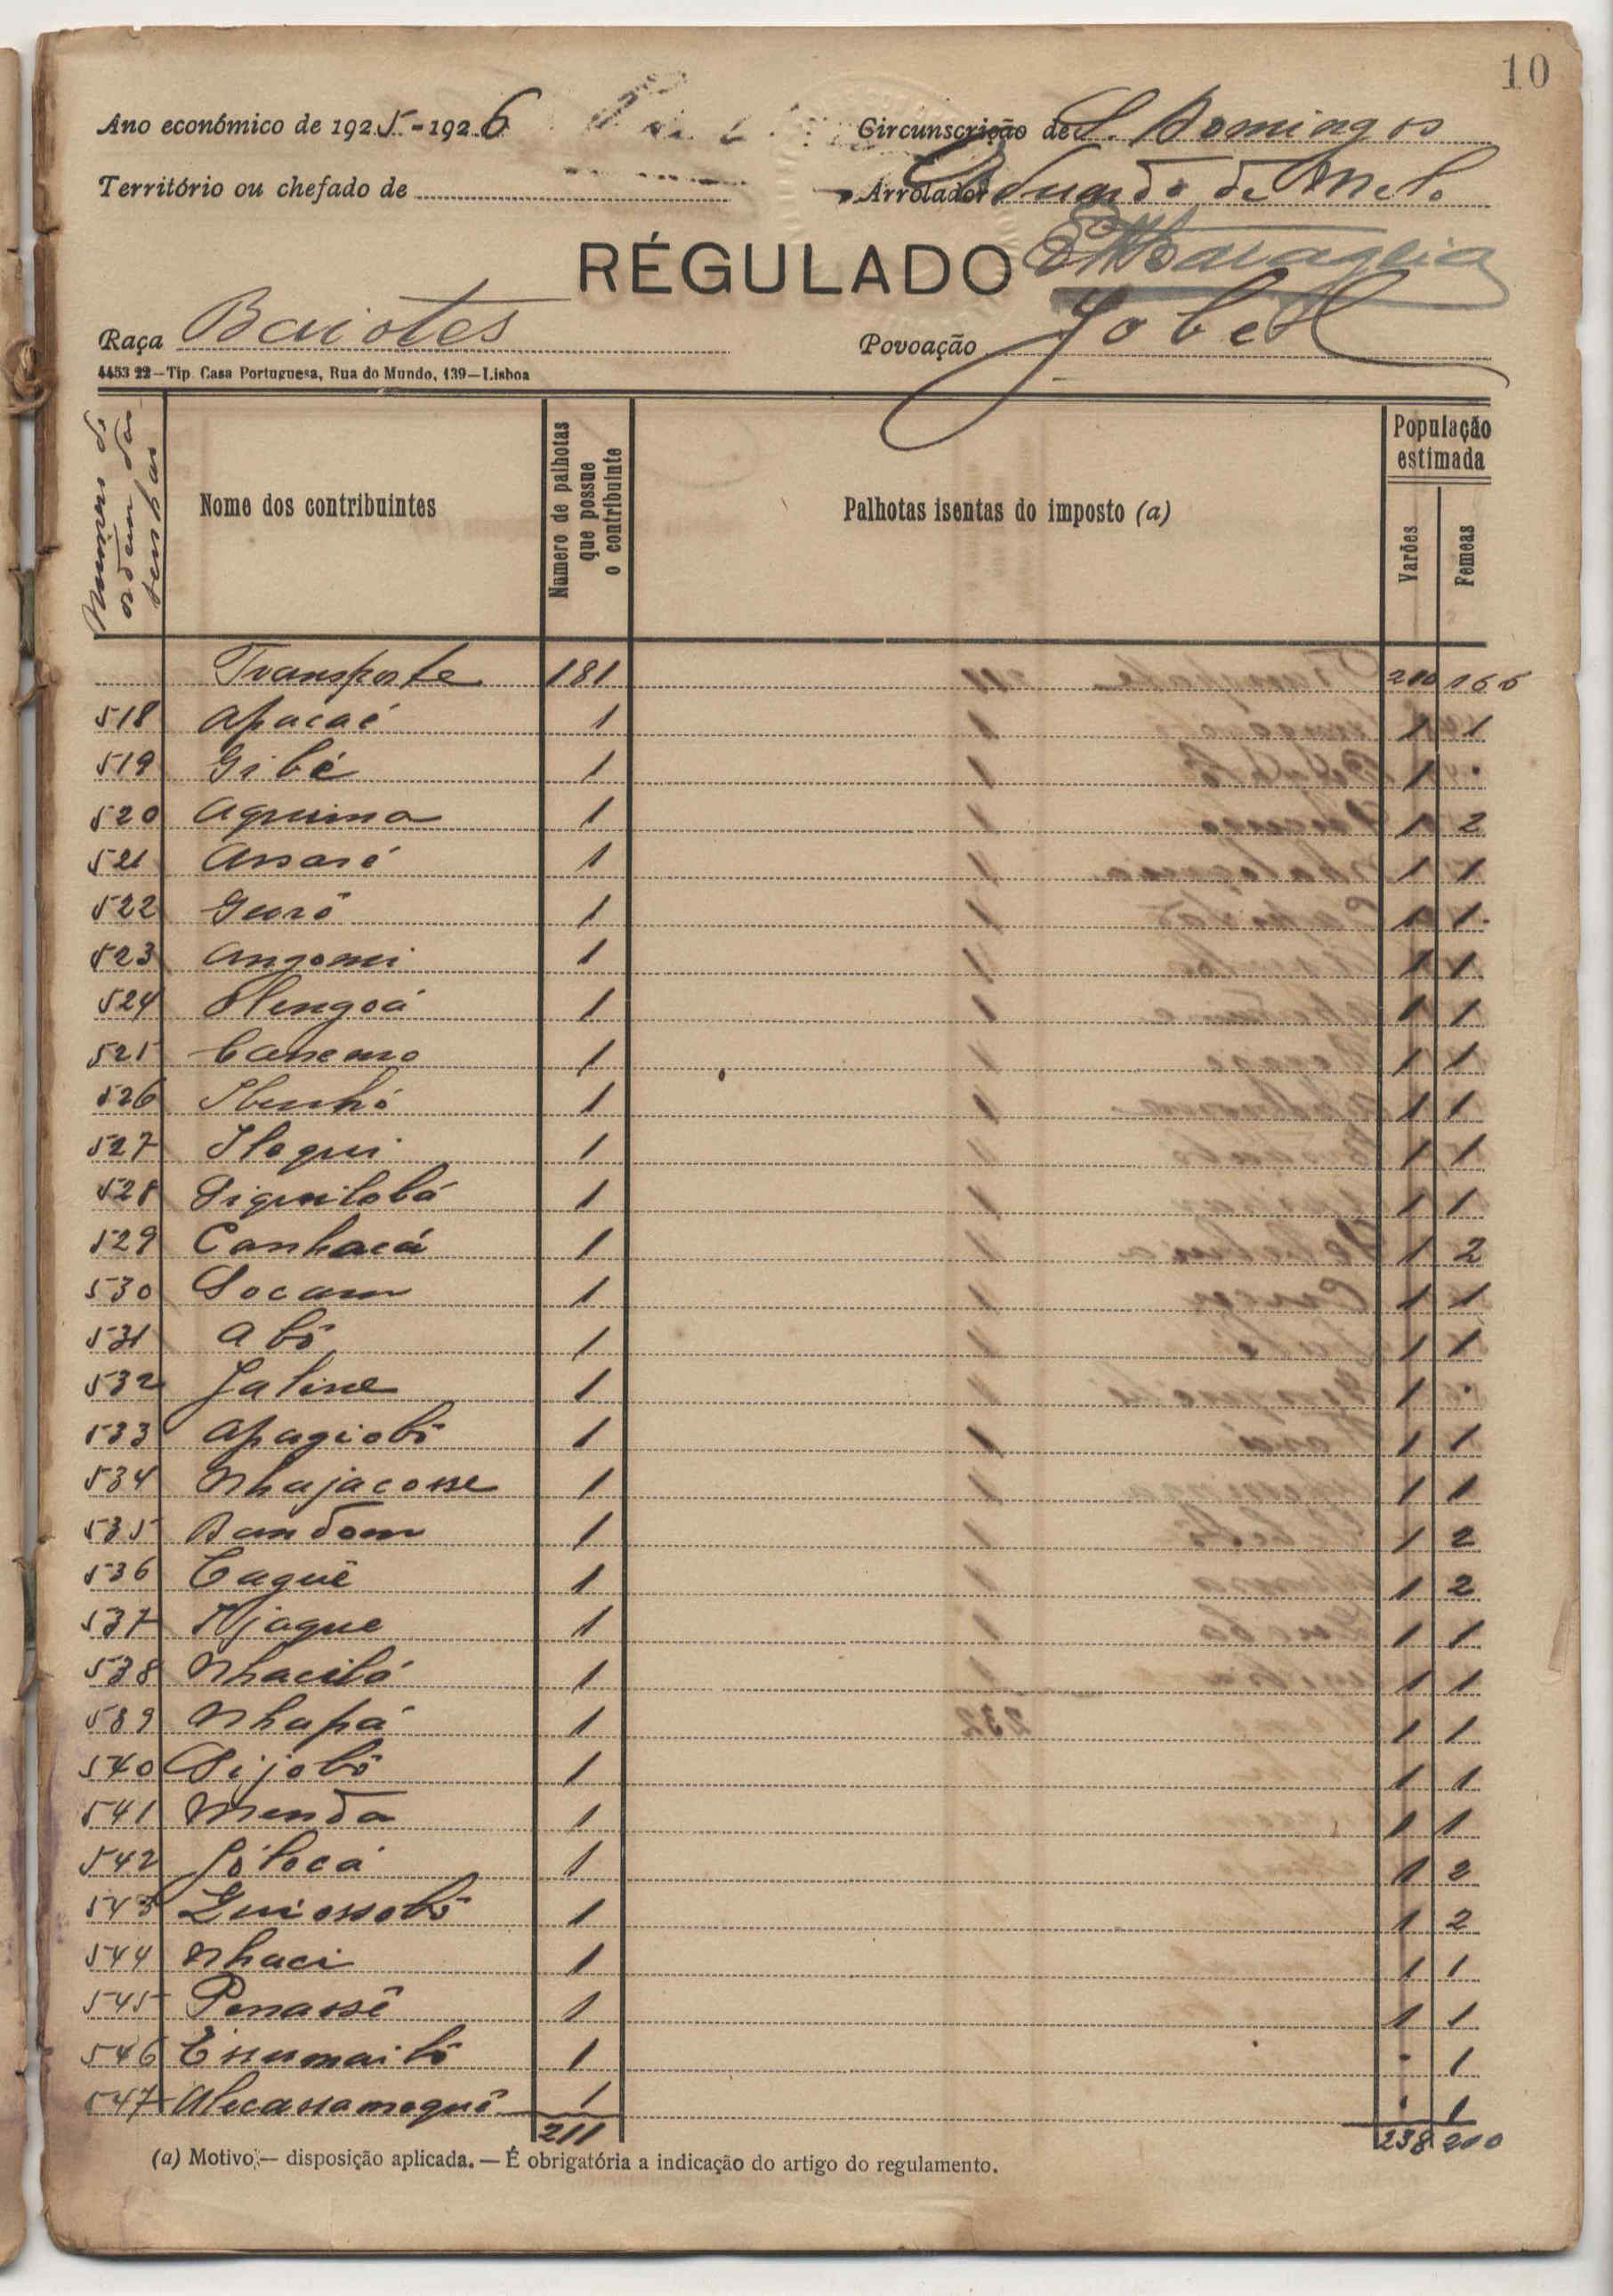 10
Ano económico de 1925-1926
Circunscrição de S. Domingos
Território ou chefado de
Arrolador Eduardo de Melo
RÉGULADO
Raça Baiotes
Povoação Jobel
4453 22—Tip. Casa Portuguesa, Rua do Mundo, 139—Lisboa
Numero de ordem das senhas
Nome dos contribuintes
Número de palhotas que possue o contribuinte
Palhotas isentas do imposto (a)
População estimada
Varões
Femeas
Transporte 181 210 166
518 Apacaé 1 1 1
519 Gibé 1 1 .
520 Aquima 1 1 2
521 Assaré 1 1 1
522 Geuró 1 1 1
523 Angomi 1 1 1
524 Olengoá 1 1 1
525 Canemo 1 1 1
526 Ibenhó 1 1 1
527 Iloqui 1 1 1
528 Siquilobá 1 1 1
529 Canhacá 1 1 2
530 Socam 1 1 1
531 Abó 1 1 1
532 Jaline 1 1 .
533 Apagiobó 1 1 1
534 Nhajacosse 1 1 1
535 Bandom 1 1 2
536 Caguê 1 1 2
537 Njaque 1 1 1
538 Nhaciló 1 1 1
539 Nhapá 1 1 1
540 Sijobó 1 1 1
541 Menda 1 1 1
542 Jólocá 1 1 2
543 Guiossobó 1 1 2
544 Nhaci 1 1 1
545 Penassê 1 1 1
546 Cissumaibó 1 - 1
547 Alecassamoquê 1 . 1
211 238 200
(a) Motivo — disposição aplicada. — É obrigatória a indicação do artigo do regulamento.